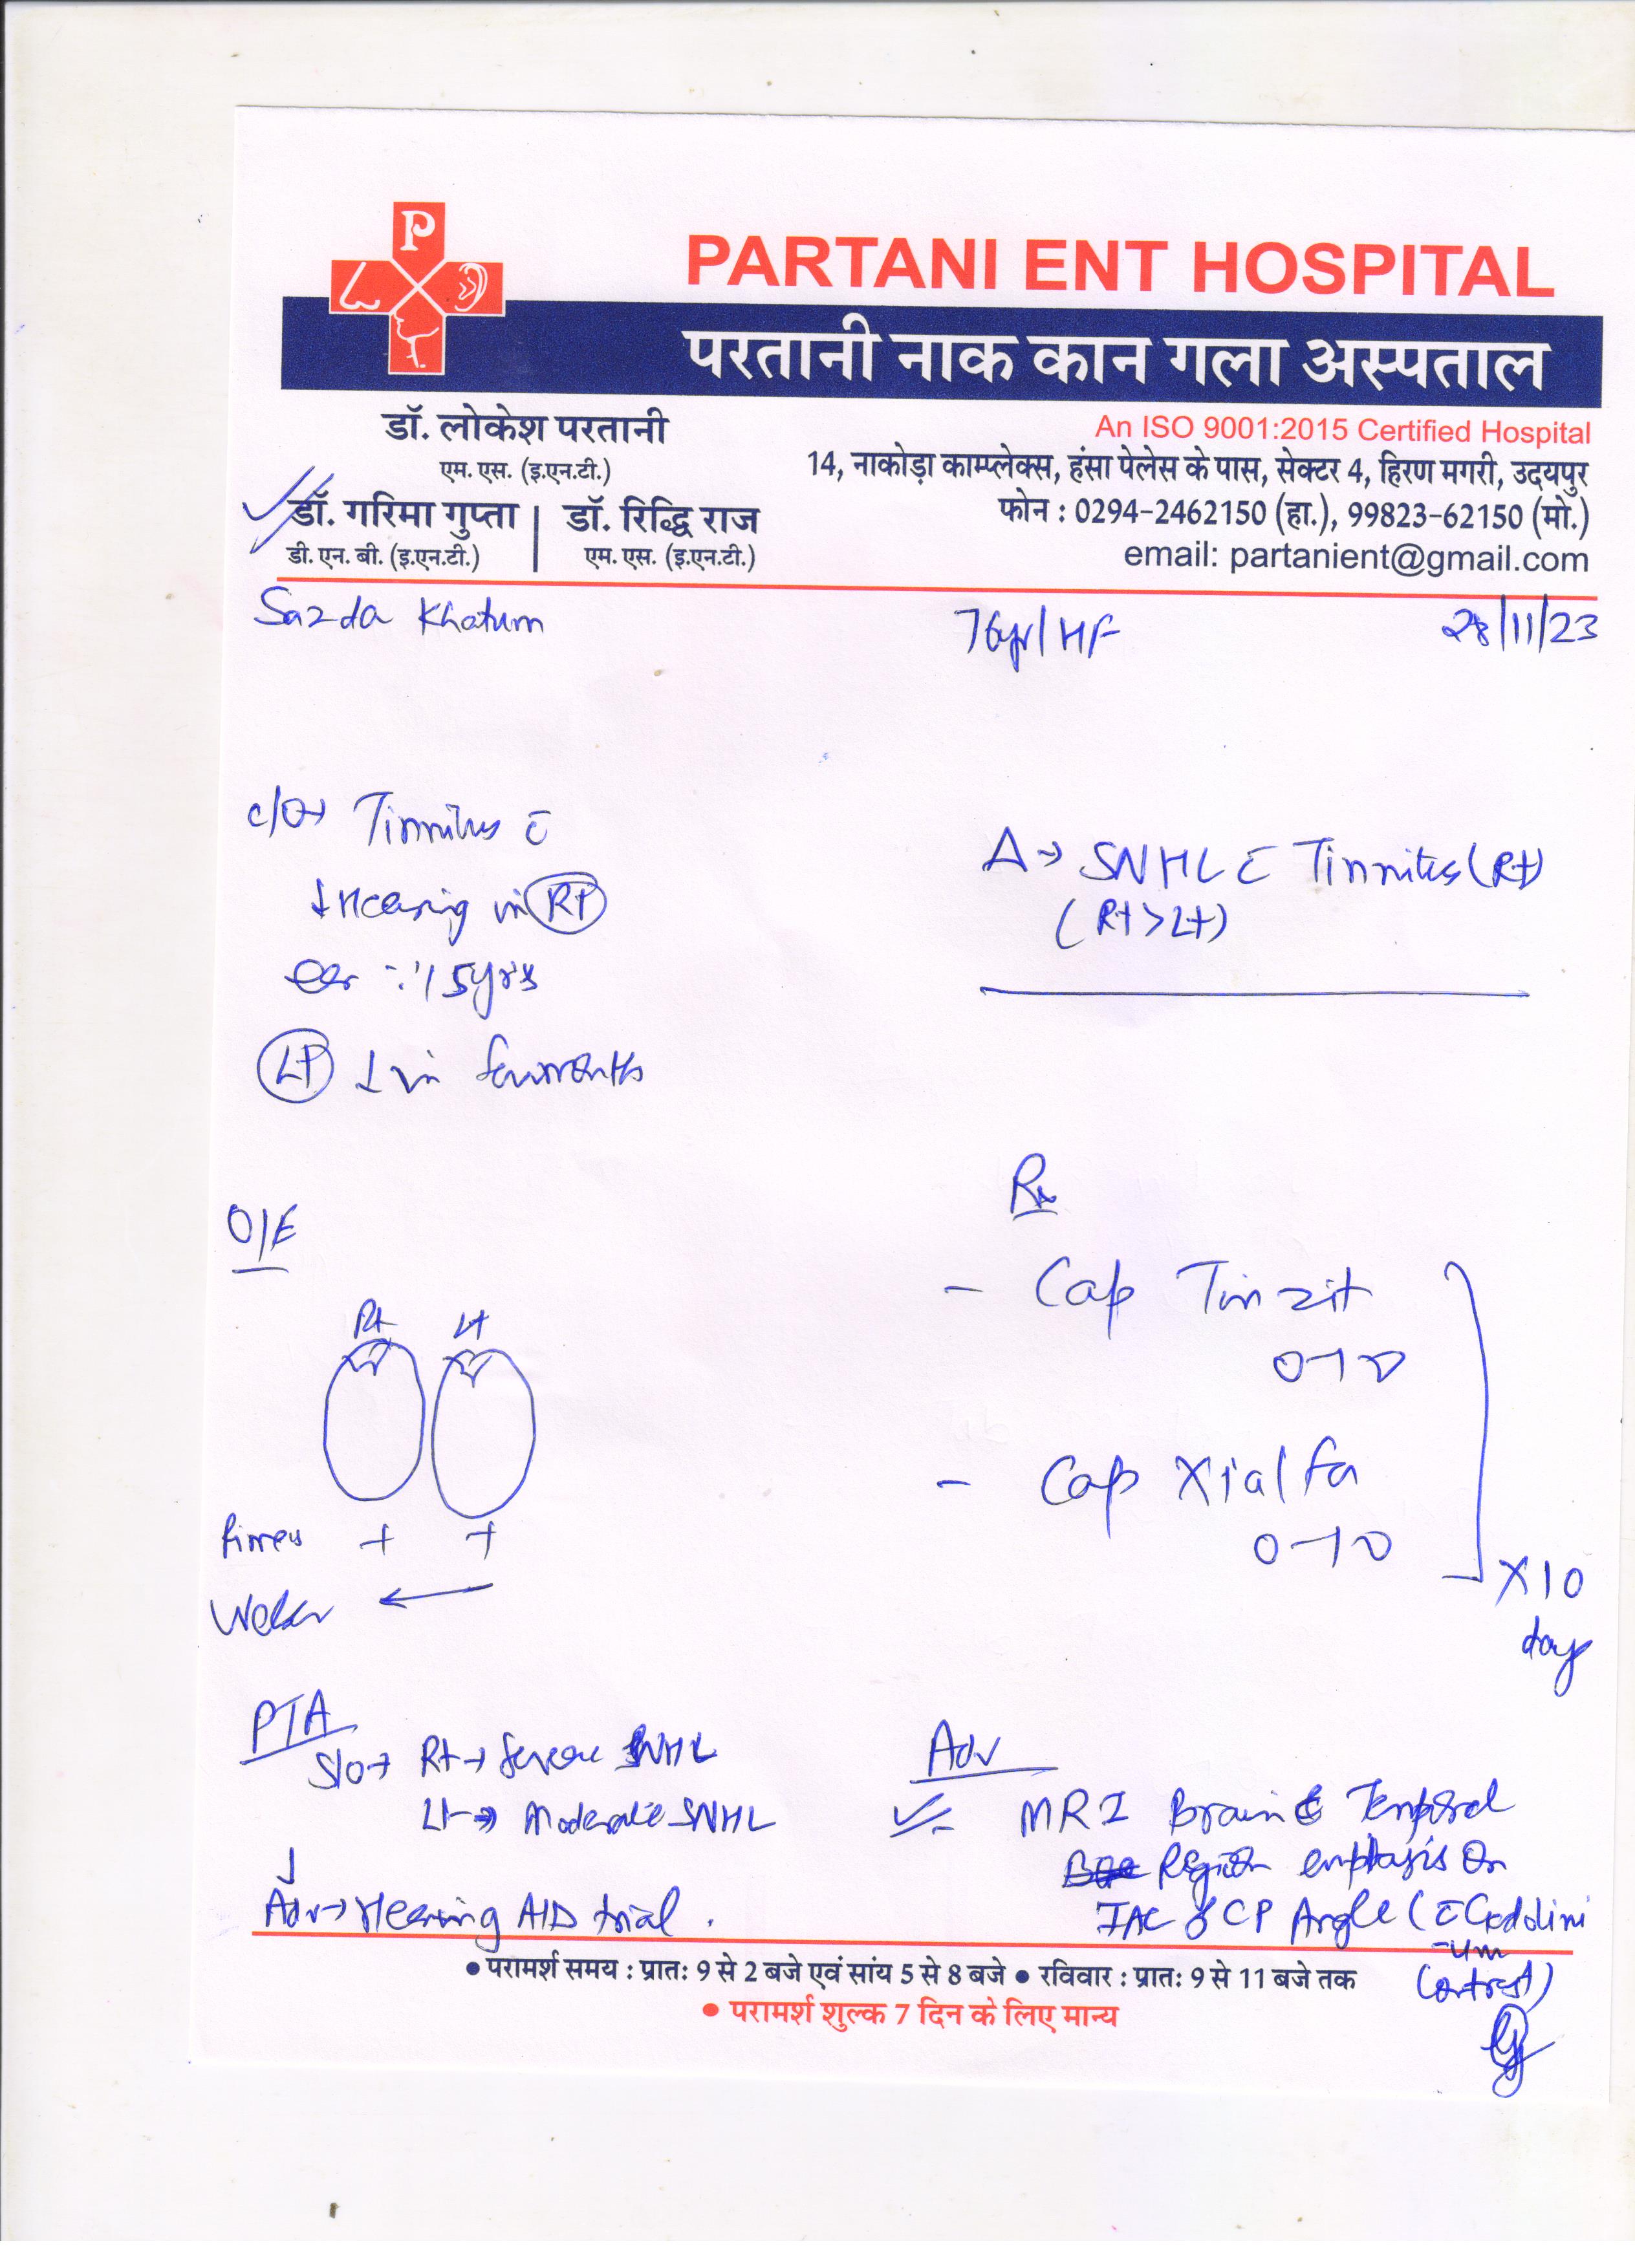 P
PARTANI ENT HOSPITAL
परतानी नाक कान गला अस्पताल
डॉ. लोकेश परतानी
एम. एस. (इ.एन.टी.)
डॉ. गरिमा गुप्ता | डॉ. रिद्धि राज
डी. एन. बी. (इ.एन.टी.) एम. एस. (इ.एन.टी.)
An ISO 9001:2015 Certified Hospital
14, नाकोड़ा काम्प्लेक्स, हंसा पेलेस के पास, सेक्टर 4, हिरण मगरी, उदयपुर
फोन : 0294-2462150 (हा.), 99823-62150 (मो.)
email: partanient@gmail.com
Sazda Khatum 76yr/HF 28/11/23
c/o→ Tinnitus c̄
↓ Hearing in Rt
ear ∵ 15yrs
Lt ↓ in few months
Δ→ SNHL c̄ Tinnitus (Rt)
(Rt > Lt)
O/E
Rt Lt
Rinne's + +
Weber ←
PTA
S/o→ Rt → Severe SNHL
Lt → Moderate SNHL
↓
Adv→ Hearing AID trial.
Rx
- Cap Tinzit
0-1-0
- Cap Xialfa
0-1-0
X10
day
Adv
MRI Brain c̄ Temporal
Region emphasis on
IAC & CP Angle (c̄ Gaddlini
-um
Contrast)
• परामर्श समय : प्रातः 9 से 2 बजे एवं सांय 5 से 8 बजे • रविवार : प्रातः 9 से 11 बजे तक
• परामर्श शुल्क 7 दिन के लिए मान्य